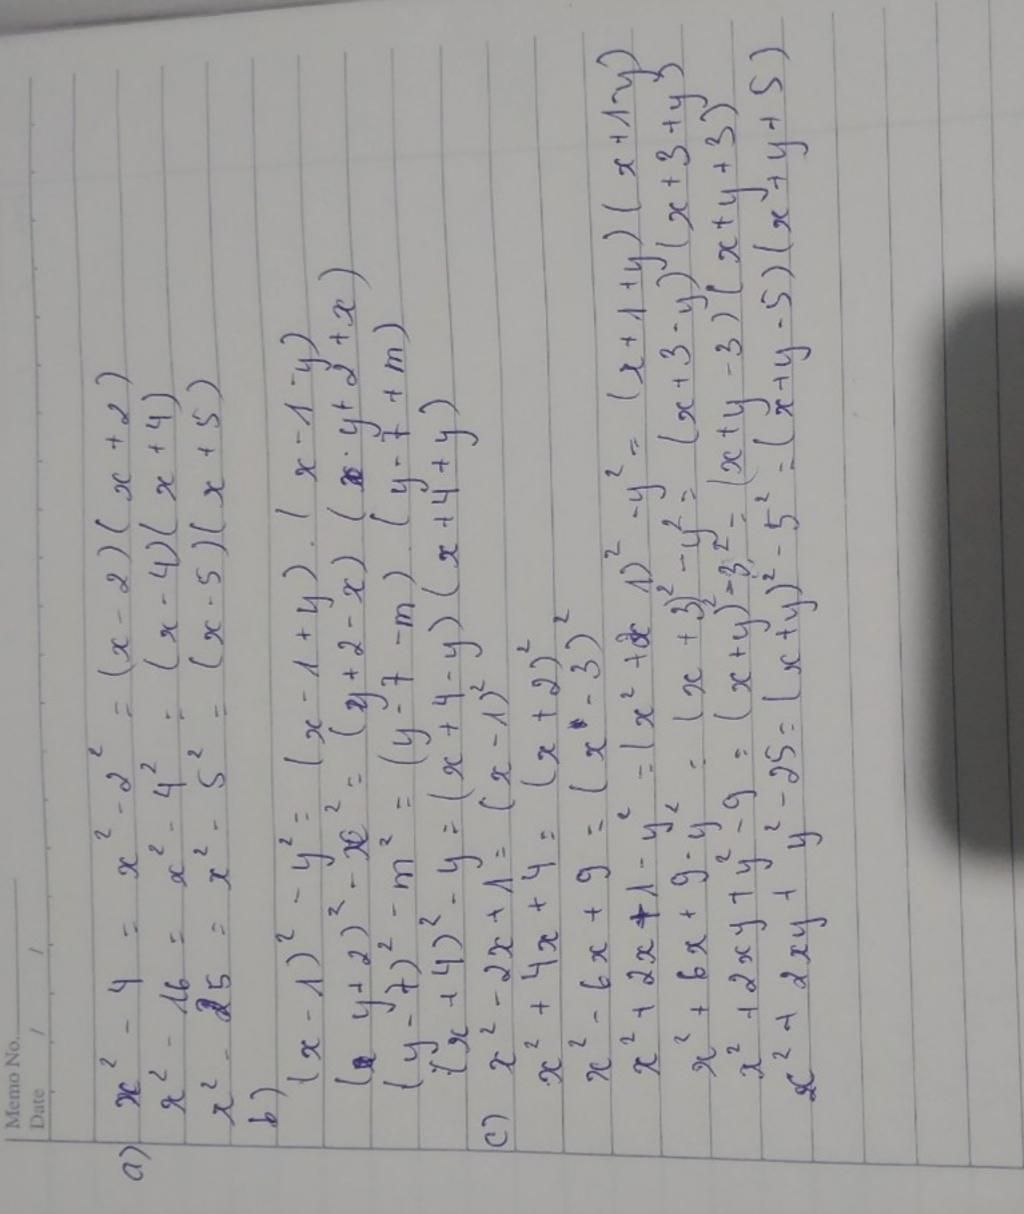 Memo No.
Date / /
a) x² - 4 = x² - 2² = (x - 2)(x + 2)
x² - 16 = x² - 4² = (x - 4)(x + 4)
x² - 25 = x² - 5² = (x - 5)(x + 5)
b)
(x - 1)² - y² = (x - 1 + y) . (x - 1 - y)
(y + 2)² - x² = (y + 2 - x) (y + 2 + x)
(y - 7)² - m² = (y - 7 - m) . (y - 7 + m)
(x + 4)² - y = (x + 4 - y) (x + 4 + y)
c) x² - 2x + 1 = (x - 1)²
x² + 4x + 4 = (x + 2)²
x² - 6x + 9 = (x - 3)²
x² + 2x + 1 - y² = (x² + 1)² - y² = (x + 1 + y) (x + 1 - y)
x² + 6x + 9 - y² = (x + 3)² - y² = (x + 3 - y) (x + 3 + y)
x² + 2xy + y² - 9 = (x + y)² - 3² = (x + y - 3) (x + y + 3)
x² + 2xy + y² - 25 = (x + y)² - 5² = (x + y - 5) (x + y + 5)